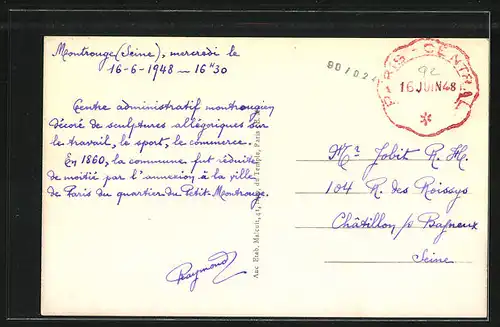 Montrouge (Seine), mercredi le
16-6-1948 — 16ʰ30
Centre administratif montrougien
décoré de sculptures allégoriques sur
le travail, le sport, le commerce.
En 1860, la commune fut réduite
de moitié par l'annexion à la ville
de Paris du quartier du Petit-Montrouge.
Raymond
Aux Etab. Malcuit, 41, du Temple, Paris
PARIS-CENTRAL
92
16 JUIN 48
Mʳ Jobit R. H.
104 R. des Roissys
Châtillon s/s Bagneux
Seine